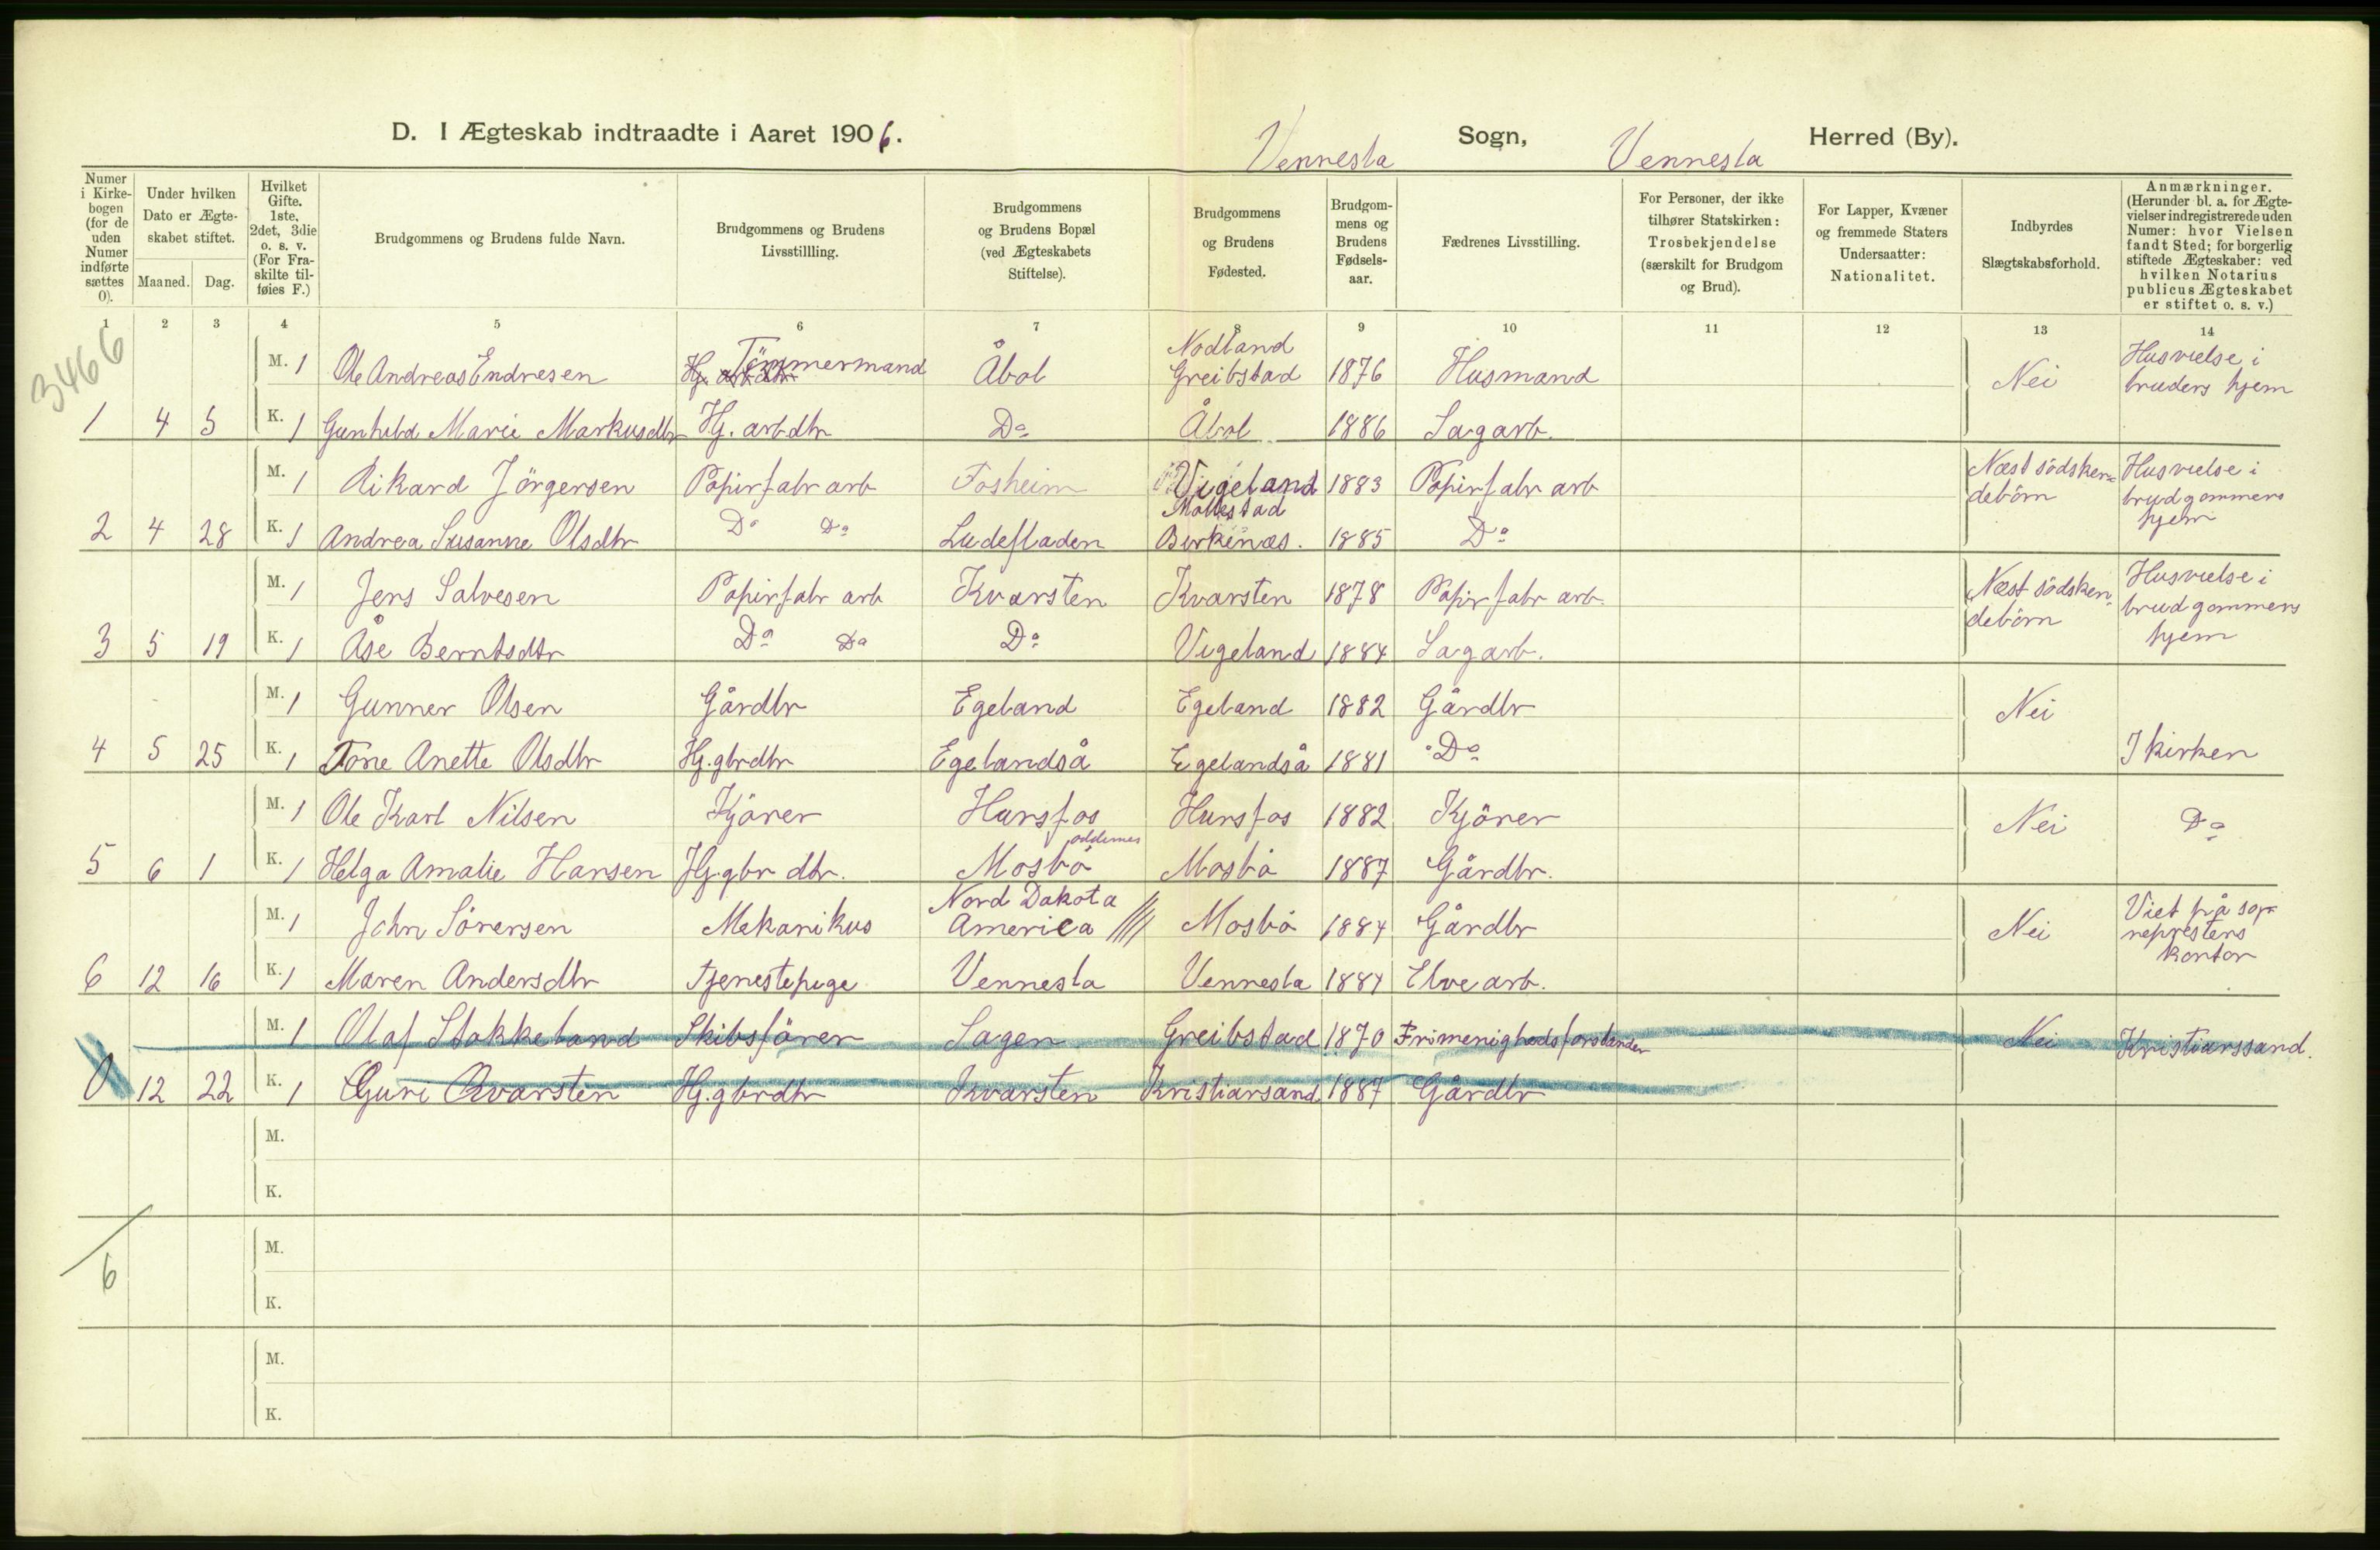 D. I Ægteskab indtraadte i Aaret 1906. Vennesla Sogn, Vennesla Herred (By).
Numer i Kirkebogen (for de uden Numer indførte sættes 0).
Under hvilken Dato er Ægteskabet stiftet.
Maaned. Dag.
Hvilket Gifte. 1ste, 2det, 3die o. s. v. (For Fraskilte tilføies F.)
Brudgommens og Brudens fulde Navn.
Brudgommens og Brudens Livsstillling.
Brudgommens og Brudens Bopæl (ved Ægteskabets Stiftelse).
Brudgommens og Brudens Fødested.
Brudgommens og Brudens Fødselsaar.
Fædrenes Livsstilling.
For Personer, der ikke tilhører Statskirken: Trosbekjendelse (særskilt for Brudgom og Brud).
For Lapper, Kvæner og fremmede Staters Undersaatter: Nationalitet.
Indbyrdes Slægtskabsforhold.
Anmærkninger. (Herunder bl. a. for Ægtevielser indregistrerede uden Numer: hvor Vielsen fandt Sted; for borgerlig stiftede Ægteskaber: ved hvilken Notarius publicus Ægteskabet er stiftet o. s. v.)
1 2 3 4 5 6 7 8 9 10 11 12 13 14
3466
M. 1 Ole Andreas Endresen Hj. Tömmermand Åbol Nodland Greibstad 1876 Husmand Nei Husvielse i bruders hjem
1 4 5 K. 1 Gunhild Marie Markusdtr Hj. arb dtr Do Åbol 1886 Sagarb.
M. 1 Rikard Jörgensen Papirfabr arb Fosheim Vigeland 1883 Papirfabr arb Næst södskendebörn Husvielse i brudgommens hjem
2 4 28 K. 1 Andrea Susanne Olsdtr Do Do Ludefladen Birkenæs. 1885 Do
M. 1 Jens Salvesen Papirfabr arb Kvarsten Kvarsten 1878 Papirfabr arb. Næst södskendebörn Husvielse i brudgommens hjem
3 5 19 K. 1 Åse Berntsdtr Do Do Do Vigeland 1884 Sagarb.
M. 1 Gunner Olsen Gårdbr Egeland Egeland 1882 Gårdbr Nei
4 5 25 K. 1 Tone Anette Olsdtr Hj. gbrdtr Egelandså Egelandså 1881 Do I kirken
M. 1 Ole Karl Nilsen Kjörer Hunsfos Hunsfos 1882 Kjörer Nei Do
5 6 1 K. 1 Helga Amalie Hansen Hj. gbr dtr. Mosbö oddernes Mosbö 1887 Gårdbr.
M. 1 John Sörensen Mekanikus Nord Dakota America Mosbö 1884 Gårdbr Nei Viet på sognepresters kontor
6 12 16 K. 1 Maren Andersdtr Tjenestepige Vennesla Vennesla 1884 Elvearb.
M. 1 Olaf Stakkeland Skibsförer Sagen Greibstad 1870 Frimenighedsforstander Nei Kristianssand.
0 12 22 K. 1 Guri Kvarsten Hj. gbrdtr Kvarsten Kristiansand 1887 Gårdbr
M.
K.
M.
6
K.
M.
K.